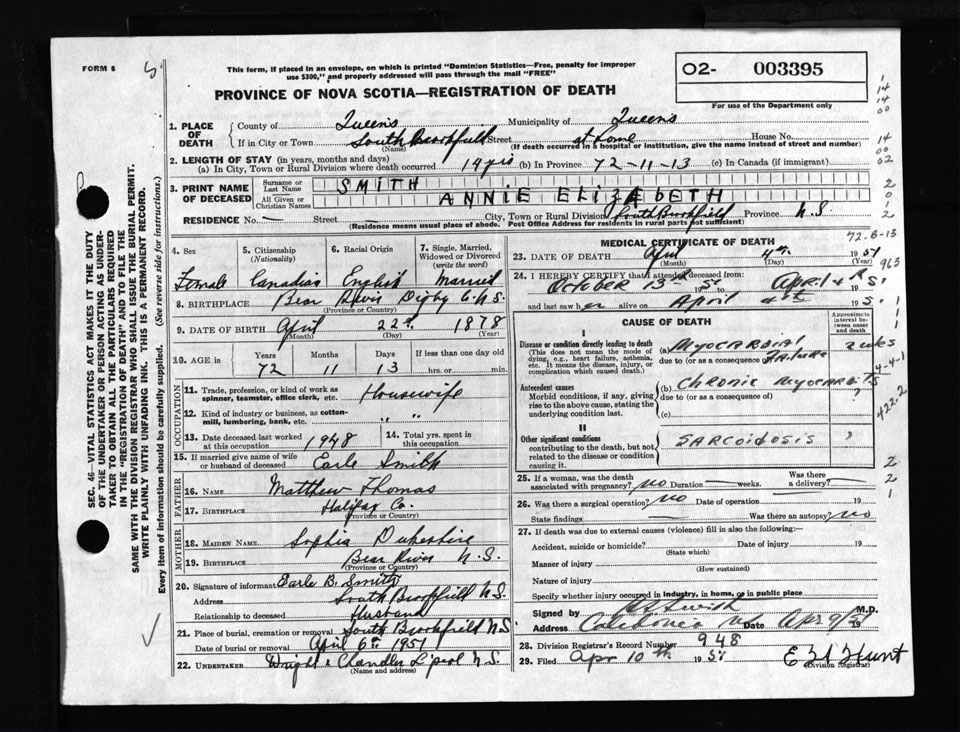 FORM 6
This form, if placed in an envelope, on which is printed "Dominion Statistics—Free, penalty for improper
use $300," and properly addressed will pass through the mail "FREE"
O2- 003395
For use of the Department only
PROVINCE OF NOVA SCOTIA—REGISTRATION OF DEATH
1. PLACE OF DEATH { County of Queens Municipality of Queens
If in City or Town South Brookfield Street at home House No.
(Name) (If death occurred in a hospital or institution, give the name instead of street and number)
2. LENGTH OF STAY (in years, months and days)
(a) In City, Town or Rural Division where death occurred 19 yrs (b) In Province 72-11-13 (c) In Canada (if immigrant)
3. PRINT NAME OF DECEASED { Surname or Last Name SMITH
All Given or Christian Names ANNIE ELIZABETH
RESIDENCE No. — Street — City, Town or Rural Division South Brookfield Province N.S.
(Residence means usual place of abode. Post Office Address for residents in rural parts not sufficient)
4. Sex Female
5. Citizenship (Nationality) Canadian
6. Racial Origin English
7. Single, Married, Widowed or Divorced (write the word) Married
8. BIRTHPLACE Bear River Digby Co. N.S.
(Province or Country)
9. DATE OF BIRTH April 22nd 1878
(Month) (Day) (Year)
10. AGE in Years 72 Months 11 Days 13 If less than one day old hrs. or min.
OCCUPATION
11. Trade, profession, or kind of work as spinner, teamster, office clerk, etc. Housewife
12. Kind of industry or business, as cotton-mill, lumbering, bank, etc. " "
13. Date deceased last worked at this occupation 1948
14. Total yrs. spent in this occupation
15. If married give name of wife or husband of deceased Earle Smith
FATHER
16. NAME Matthew Thomas
17. BIRTHPLACE Halifax Co.
(Province or Country)
MOTHER
18. MAIDEN NAME Sophia Dukeshire
19. BIRTHPLACE Bear River N.S.
(Province or Country)
20. Signature of informant Earle B. Smith
Address South Brookfield N.S.
Relationship to deceased Husband
21. Place of burial, cremation or removal South Brookfield N.S.
Date of burial or removal April 6th 1951
22. UNDERTAKER Wright & Chandler L'pool N.S.
(Name and address)
MEDICAL CERTIFICATE OF DEATH
72-8-13
23. DATE OF DEATH April 4th 1951
(Month) (Day) (Year)
24. I HEREBY CERTIFY that I attended deceased from:
October 13th 1950 to April 4th 1951
and last saw her alive on April 4th 1951
CAUSE OF DEATH
Approximate interval between onset and death
I
Disease or condition directly leading to death
(This does not mean the mode of dying, e.g., heart failure, asthenia, etc. It means the disease, injury, or complication which caused death.)
(a) Myocardial Failure 2 wks
due to (or as a consequence of)
Antecedent causes
Morbid conditions, if any, giving rise to the above cause, stating the underlying condition last.
(b) Chronic Myocarditis
due to (or as a consequence of)
(c)
4-4-1
422.2
II
Other significant conditions
contributing to the death, but not related to the disease or condition causing it.
Sarcoidosis ?
25. If a woman, was the death associated with pregnancy? no Duration — weeks. Was there a delivery? —
26. Was there a surgical operation? no Date of operation 19
State findings Was there an autopsy? no
27. If death was due to external causes (violence) fill in also the following:—
Accident, suicide or homicide? Date of injury 19
(State which)
Manner of injury
(How sustained)
Nature of injury
Specify whether injury occurred in industry, in home, or in public place
Signed by M.D.
Address Caledonia Date Apr 9/51
28. Division Registrar's Record Number 948
29. Filed Apr 10th 1951 Hunt
(Division Registrar)
SEC. 46—VITAL STATISTICS ACT MAKES IT THE DUTY
OF THE UNDERTAKER OR PERSON ACTING AS UNDER-
TAKER TO OBTAIN ALL THE PARTICULARS REQUIRED
IN THE "REGISTRATION OF DEATH" AND TO FILE THE
SAME WITH THE DIVISION REGISTRAR WHO SHALL ISSUE THE BURIAL PERMIT.
WRITE PLAINLY WITH UNFADING INK. THIS IS A PERMANENT RECORD.
Every item of information should be carefully supplied. (See reverse side for instructions.)